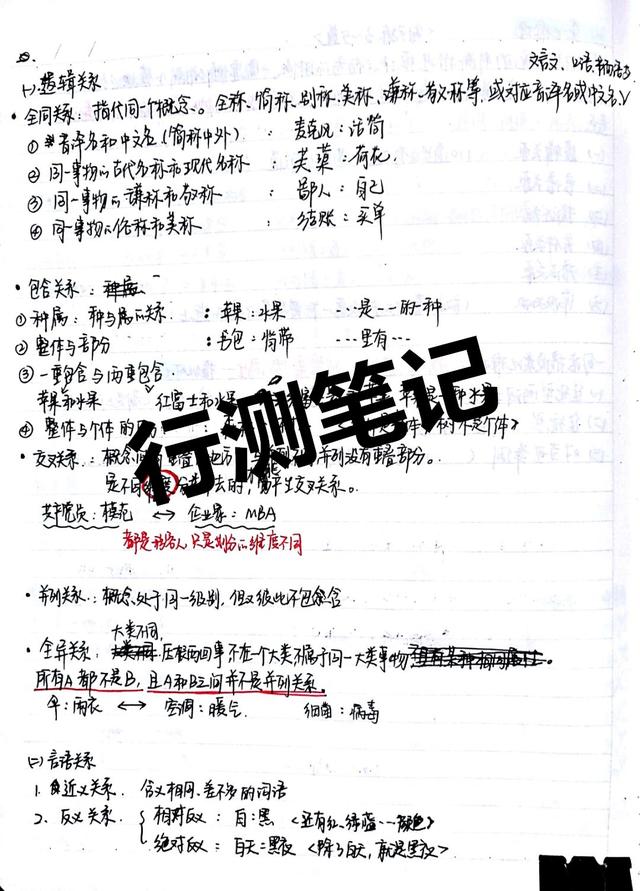 文言文、口语、书面语
(一) 逻辑关系
• 全同关系：指代同个概念。全称、简称、别称、美称、谦称、敬称等，或对应音译名或中文名
① 音译名和中文名 (简称中外)：麦克风：话筒
② 同一事物的古代名称和现代名称：芙蕖：荷花
③ 同一事物的谦称和敬称：鄙人：自己
④ 同一事物的俗称和美称：结账：买单
• 包含关系：种属
① 种属：种与属的关系：苹果：水果 …是…的一种
② 整体与部分：书包：背带 …里有…
③ 一要包含与两要包含
苹果和水果 红富士和水果
行测笔记
④ 整体与个体的
• 交叉关系：概念间有重叠
是不同维度 产生交叉关系。
共产党员：模范 ↔ 企业家：MBA
都是 只是划分的维度不同
• 并列关系：概念处于同一级别，但又彼此不包含
大类不同，
• 全异关系：压根两回事不在一个大类不属于同一大类事物
所有A都不是B，且A和B之间并不是并列关系。
伞：雨衣 ↔ 空调：暖气 细菌：病毒
(二) 言语关系
1. 近义关系. 含义相同、差不多的词语
2. 反义关系. 相对反义：白：黑 <还有红、绿、蓝…颜色>
绝对反义：白天：黑夜 <除了白天，就是黑夜>